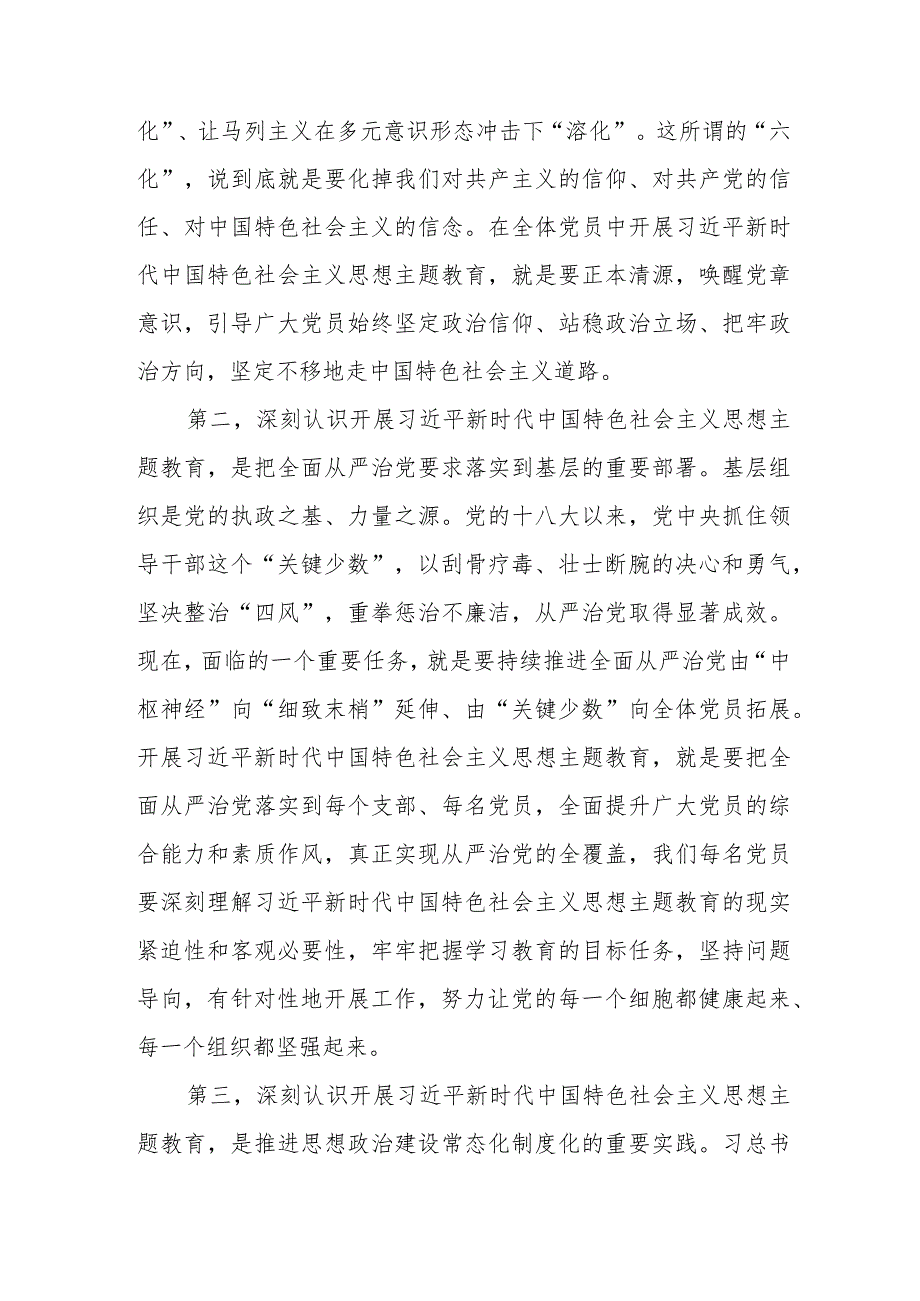 化”、让马列主义在多元意识形态冲击下“溶化”。这所谓的“六
化”，说到底就是要化掉我们对共产主义的信仰、对共产党的信
任、对中国特色社会主义的信念。在全体党员中开展习近平新时
代中国特色社会主义思想主题教育，就是要正本清源，唤醒党章
意识，引导广大党员始终坚定政治信仰、站稳政治立场、把牢政
治方向，坚定不移地走中国特色社会主义道路。
第二，深刻认识开展习近平新时代中国特色社会主义思想主
题教育，是把全面从严治党要求落实到基层的重要部署。基层组
织是党的执政之基、力量之源。党的十八大以来，党中央抓住领
导干部这个“关键少数”，以刮骨疗毒、壮士断腕的决心和勇气，
坚决整治“四风”，重拳惩治不廉洁，从严治党取得显著成效。
现在，面临的一个重要任务，就是要持续推进全面从严治党由“中
枢神经”向“细致末梢”延伸、由“关键少数”向全体党员拓展。
开展习近平新时代中国特色社会主义思想主题教育，就是要把全
面从严治党落实到每个支部、每名党员，全面提升广大党员的综
合能力和素质作风，真正实现从严治党的全覆盖，我们每名党员
要深刻理解习近平新时代中国特色社会主义思想主题教育的现实
紧迫性和客观必要性，牢牢把握学习教育的目标任务，坚持问题
导向，有针对性地开展工作，努力让党的每一个细胞都健康起来、
每一个组织都坚强起来。
第三，深刻认识开展习近平新时代中国特色社会主义思想主
题教育，是推进思想政治建设常态化制度化的重要实践。习总书